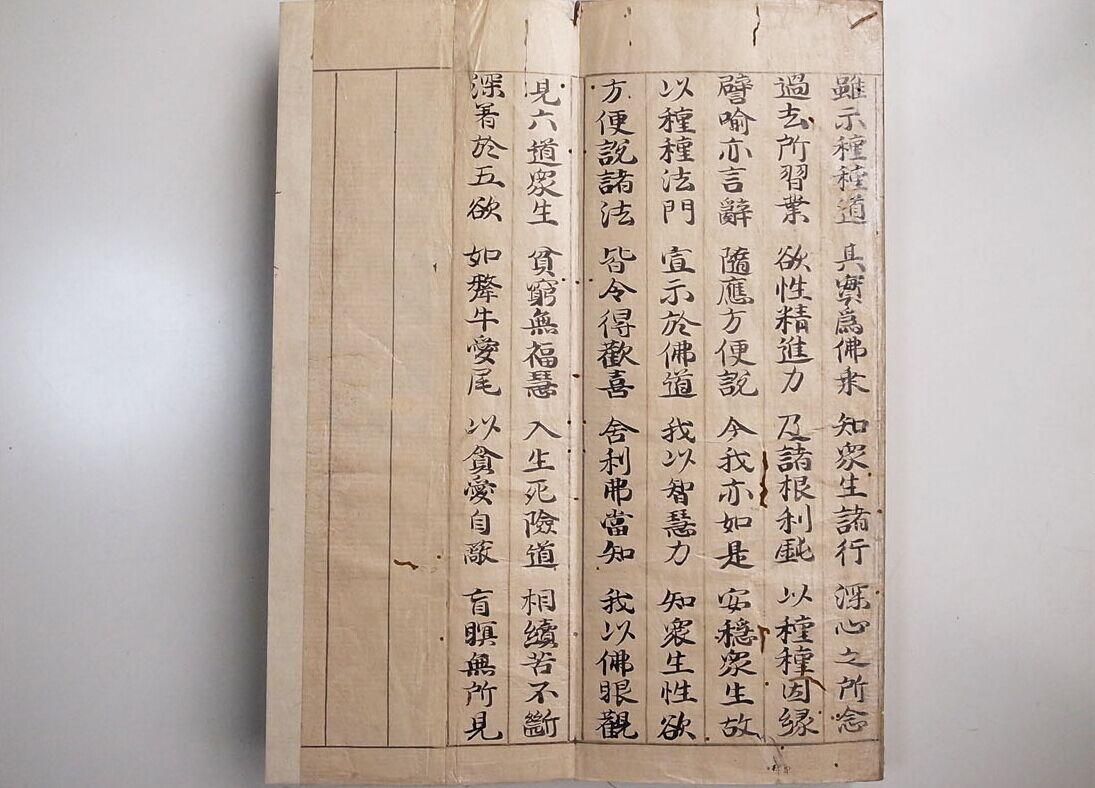 雖示種種道 其實爲佛乘 知衆生諸行 深心之所念
過去所習業 欲性精進力 及諸根利鈍 以種種因縁
譬喻亦言辭 隨應方便說 今我亦如是 安穩衆生故
以種種法門 宣示於佛道 我以智慧力 知衆生性欲
方便說諸法 皆令得歡喜 舍利弗當知 我以佛眼觀
見六道衆生 貧窮無福慧 入生死險道 相續苦不斷
深著於五欲 如犛牛愛尾 以貪愛自蔽 盲瞑無所見